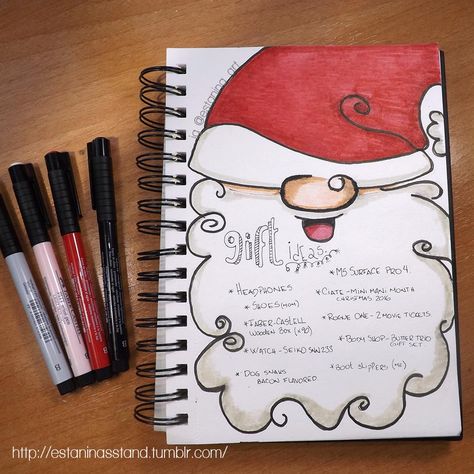 @estanina_art
gift ideas
* HEADPHONES
* SHOES (MOM)
* FABER-CASTELL
WOODEN BOX (x90)
* WATCH - SEIKO
* DOG SNAKS
BACON FLAVORED.
* MS SURFACE PRO 4.
* CIATE - MINI MANI MONTH
CHRISTMAS 2016
* ROGUE ONE - 2 MOVIE TICKETS
* BODY SHOP - BUTTER TRIO
GIFT SET
* BOOT SLIPPERS (ME)
http://estaninasstand.tumblr.com/